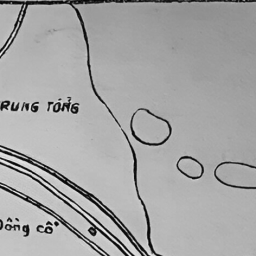 RUNG TỔNG
Đồng cổ